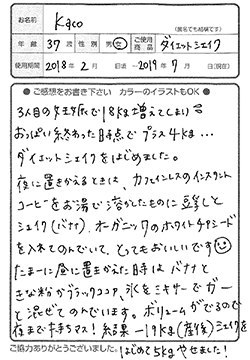 お名前 Kaco
(匿名でも結構です)
年齢 37才 性別 男・女 ご使用商品 ダイエットシェイク
使用期間 2018年2月 日頃 〜2019年7月 日(現在)
●ご感想をお書き下さい カラーのイラストもOK●
3人目の妊娠で18kg増えてしまい
おっぱい終わった時点でプラス4kg…
ダイエットシェイクをはじめました。
夜に置きかえるときは、カフェインレスのインスタント
コーヒーをお湯で溶かしたものに豆乳と
シェイク(バナナ)、オーガニックのホワイトチアシード
を入れてのんでいて、とってもおいしいです
たまーに昼に置きかえた時はバナナと
きな粉かブラックココア、氷をミキサーでガー
と混ぜてのんでいます。ボリュームがでるので
夜まで水チョロマス! 結果−19kg(産後)シェイクを
はじめて5kgやせました!
ご協力ありがとうございました。